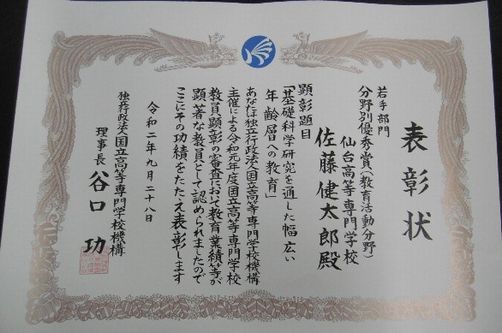 表彰状
若手部門
分野別優秀賞(教育活動分野)
仙台高等専門学校
佐藤健太郎殿
顕彰題目
「基礎科学研究を通した幅広い
年齢層への教育」
あなたは独立行政法人国立高等専門学校機構
主催による令和元年度国立高等専門学校
教員顕彰の審査において教育業績等が
顕著な教員として認められましたので
ここにその功績をたたえ表彰します
令和二年九月二十八日
独立行政法人国立高等専門学校機構
理事長 谷口 功